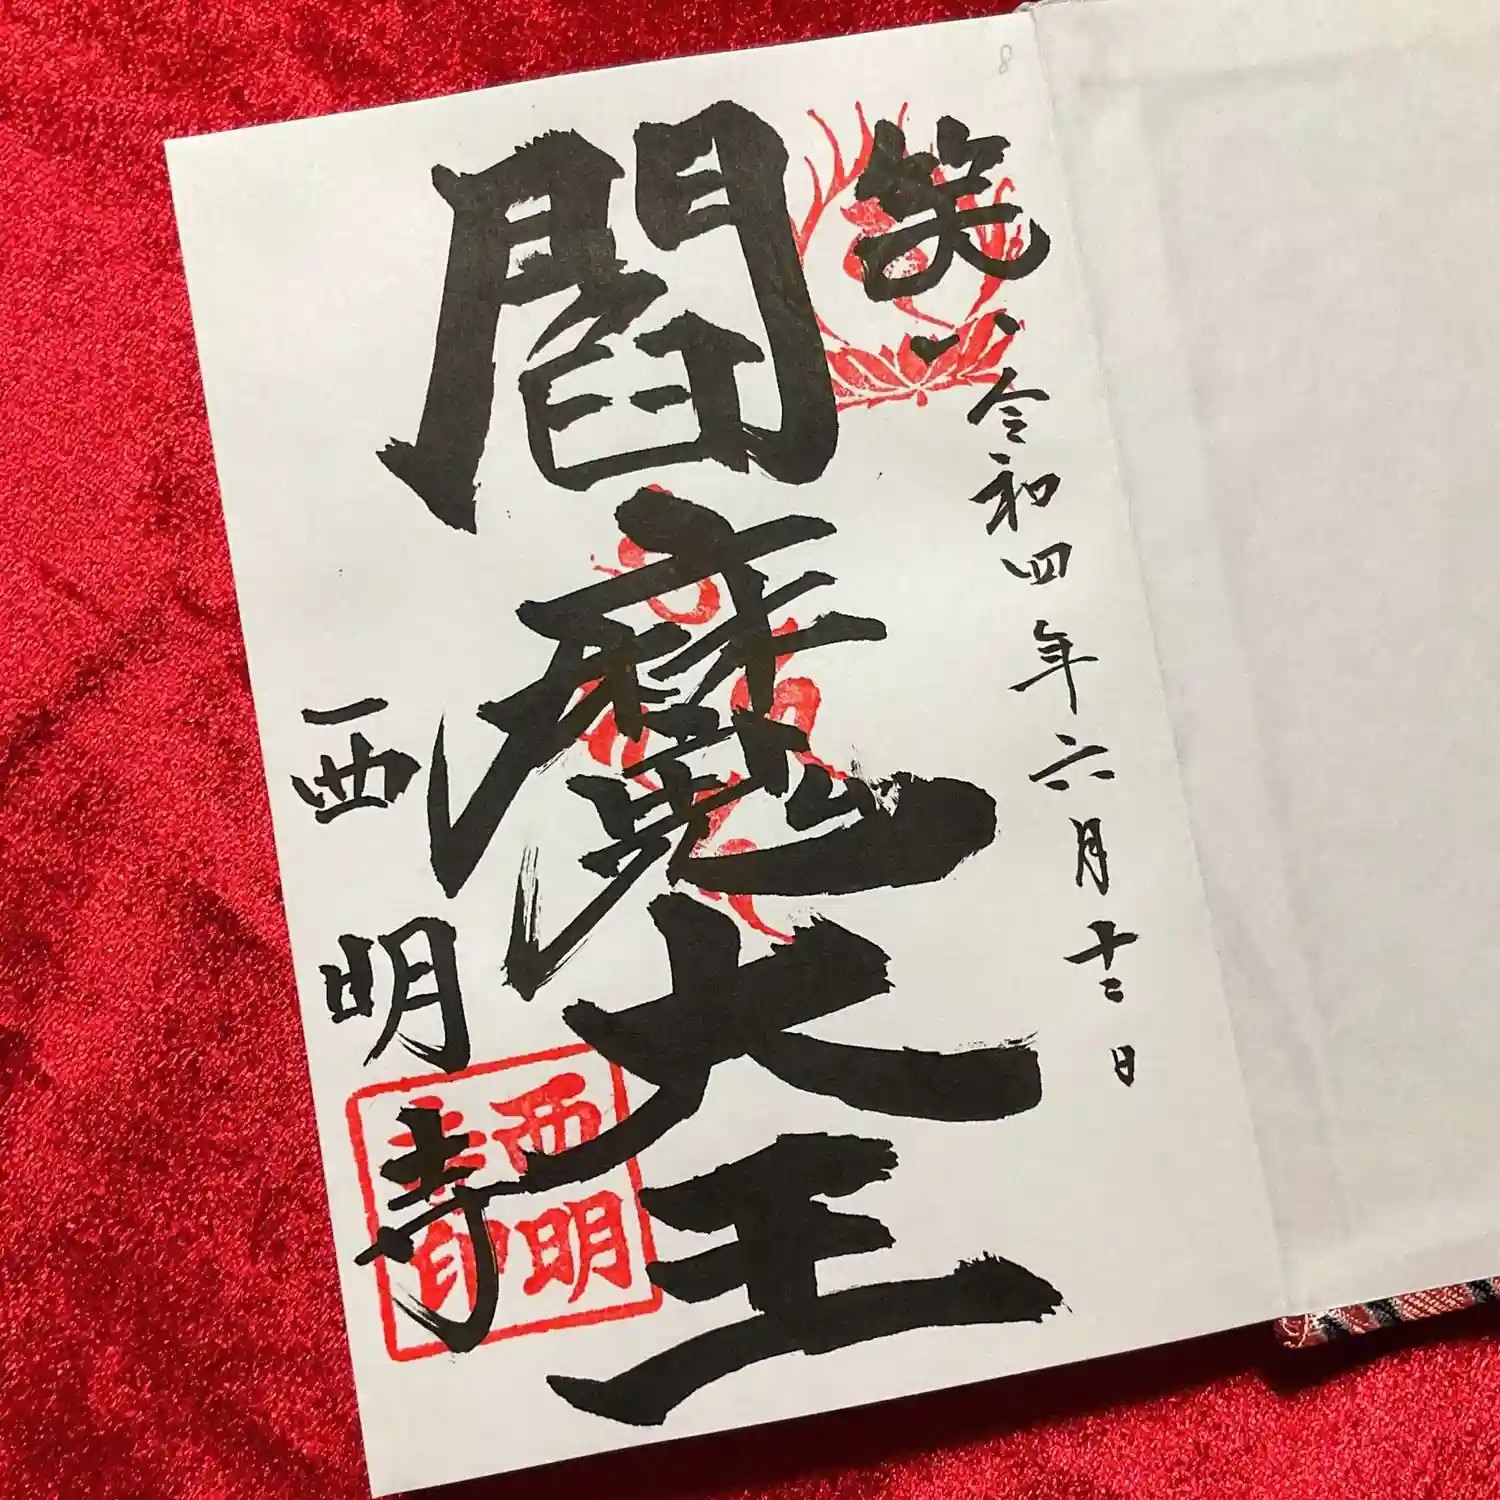 笑い
令和四年六月十二日
閻魔大王
西明寺
西明
寺印
8